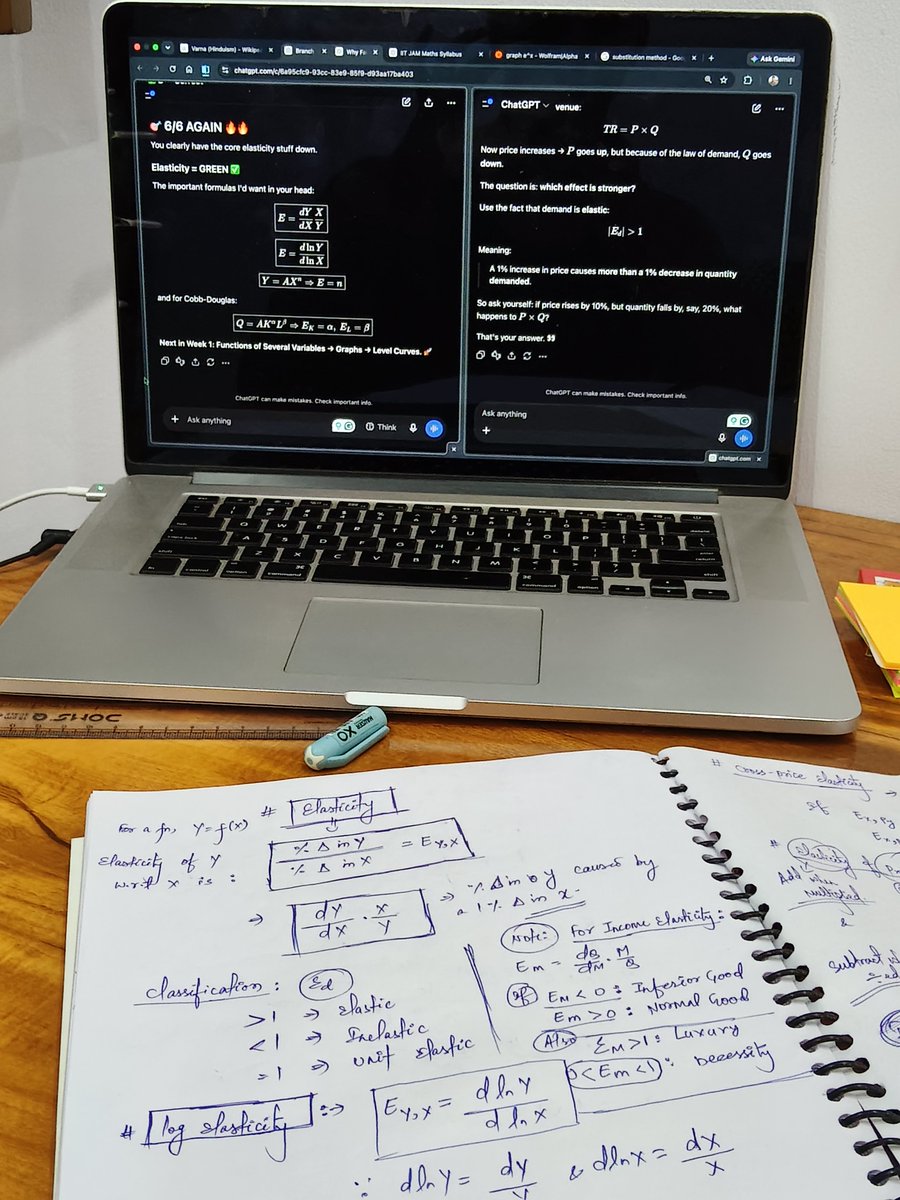 Varna (Hinduism) - Wikipe
Branch
Why Fe
IIT JAM Maths Syllabus
graph e^x - WolframAlpha
substitution method - Goo
Ask Gemini
chatgpt.com/c/6a95cfc9-93cc-83e9-85f9-d93aa17ba403
🎯 6/6 AGAIN 🔥🔥
You clearly have the core elasticity stuff down.
Elasticity = GREEN ✅
The important formulas I'd want in your head:
E = dY/dX X/Y
E = d ln Y/d ln X
Y = AXⁿ ⇒ E = n
and for Cobb-Douglas:
Q = AK^α L^β ⇒ E_K = α, E_L = β
Next in Week 1: Functions of Several Variables → Graphs → Level Curves. 🚀
ChatGPT can make mistakes. Check important info.
+ Ask anything
Think
ChatGPT venue:
TR = P × Q
Now price increases → P goes up, but because of the law of demand, Q goes
down.
The question is: which effect is stronger?
Use the fact that demand is elastic:
|E_d| > 1
Meaning:
A 1% increase in price causes more than a 1% decrease in quantity
demanded.
So ask yourself: if price rises by 10%, but quantity falls by, say, 20%, what
happens to P × Q?
That's your answer.
ChatGPT can make mistakes. Check important info.
Ask anything
+
chatgpt.com
tab
Q W E R T Y U I O P
A S D F G H J K L
return
shift
Z X C V B N M
shift
fn
control
option
command
command
option
DOMS
XO
# Elasticity
For a fn, Y = f(x)
Elasticity of Y
w.r.t X is :
% Δ in Y / % Δ in X = E_Y,X
⇒ dY/dX · X/Y
→ % Δ in Y caused by
a 1% Δ in X
classification : Ed
>1 ⇒ Elastic
<1 ⇒ Inelastic
=1 ⇒ unit Elastic
Note: For Income Elasticity:
Em = dQ/dM · M/Q
If Em < 0 : Inferior Good
Em > 0 : Normal Good
Also Em > 1 : Luxury
0 < Em < 1 : Necessity
# log elasticity :→ E_Y,X = d ln Y / d ln X
∵ d ln Y = dY/Y & d ln X = dX/X
# cross-price elasticity →
If
# Elasticity
Add when
multiplied
&
Subtract